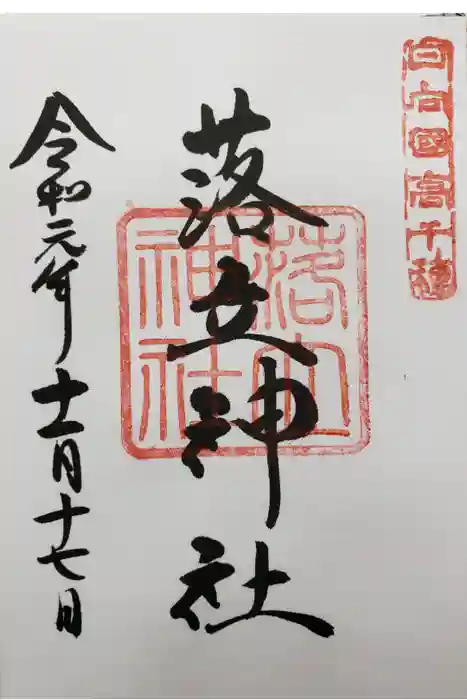 日向國高千穂
落立神社
落立
神社
令和元年十一月十七日